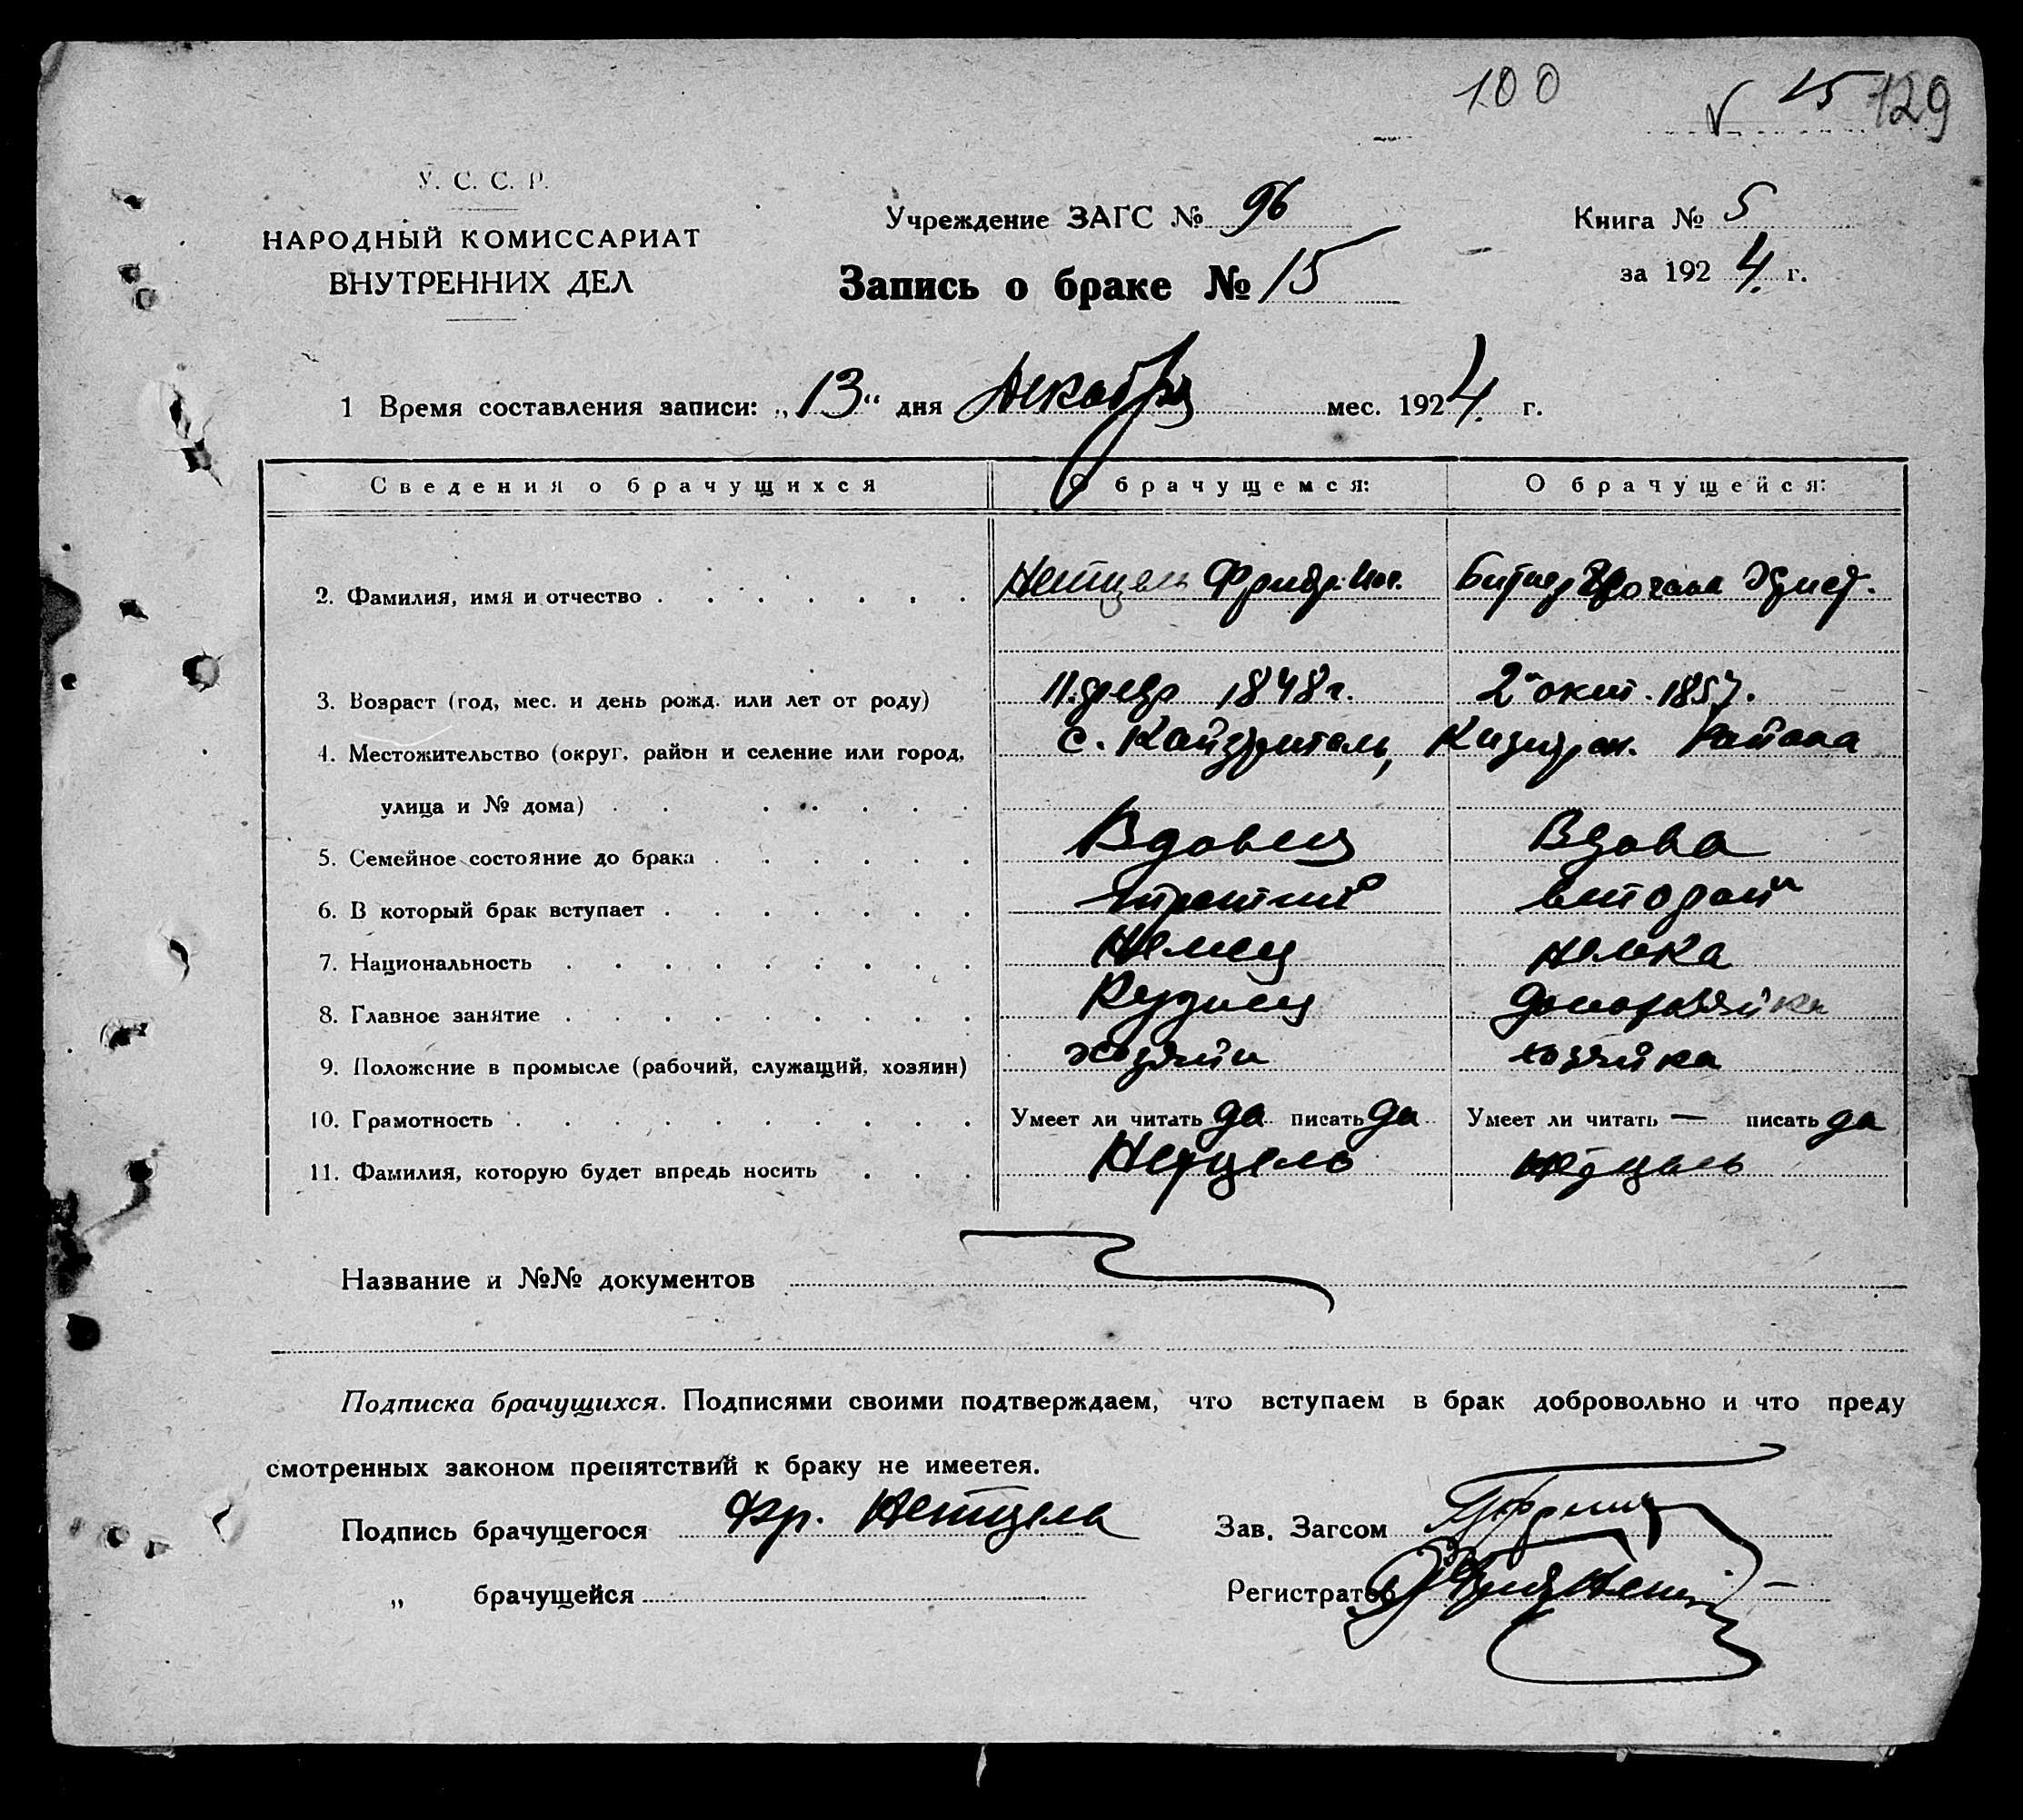 100
√ 15 129
У. С. С. Р.
НАРОДНЫЙ КОМИССАРИАТ
ВНУТРЕННИХ ДЕЛ
Учреждение ЗАГС № 96
Книга № 5
Запись о браке № 15
за 1924 г.
1 Время составления записи: „13“ дня декабря мес. 1924 г.
Сведения о брачущихся О брачущемся: О брачущейся:
2. Фамилия, имя и отчество Нетцель Фридр. Битнер
3. Возраст (год, мес. и день рожд. или лет от роду) 11 февр 1848 г. 2 окт. 1857.
4. Местожительство (округ, район и селение или город, с. Района
улица и № дома)
5. Семейное состояние до брака Вдовец Вдова
6. В который брак вступает третий второй
7. Национальность Немец немка
8. Главное занятие Кузнец домохозяйка
9. Положение в промысле (рабочий, служащий, хозяин) хозяин хозяйка
10. Грамотность Умеет ли читать да писать да Умеет ли читать — писать да
11. Фамилия, которую будет впредь носить Нетцель Нетцель
Название и №№ документов
Подписка брачущихся. Подписями своими подтверждаем, что вступаем в брак добровольно и что преду
смотренных законом препятствий к браку не имеетея.
Подпись брачущегося Фр. Нетцель Зав. Загсом
„ брачущейся Регистратор